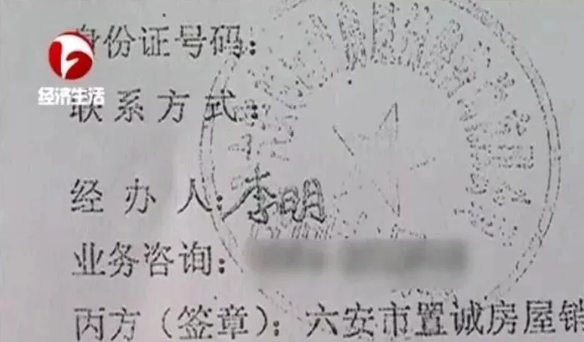 身份证号码：
经济生活
联系方式：
经办人：李明
业务咨询：
丙方（签章）：六安市置诚房屋销